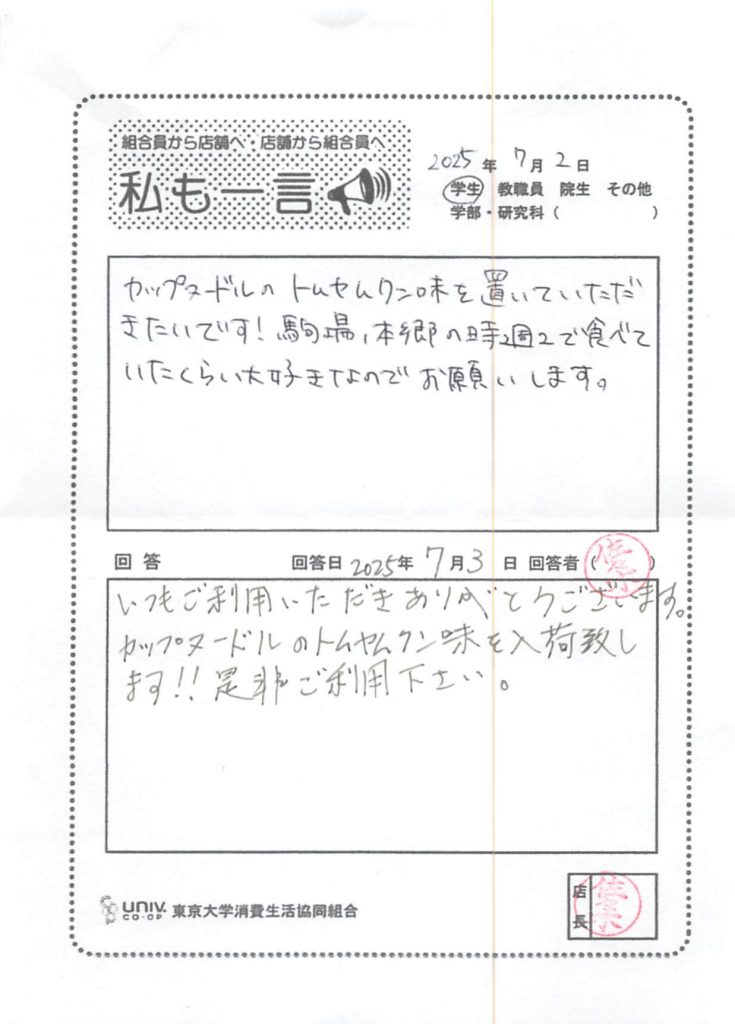 組合員から店舗へ・店舗から組合員へ
私も一言
2025年7月2日
学生 教職員 院生 その他
学部・研究科( )
カップヌードルのトムヤムクン味を置いていただ
きたいです!駒場,本郷の時週2で食べて
いたくらい大好きなのでお願いします。
回答 回答日2025年7月3日 回答者( )
いつもご利用いただきありがとうございます。
カップヌードルのトムヤムクン味を入荷致し
ます!!是非ご利用下さい。
UNIV.
CO-OP
東京大学消費生活協同組合
店長